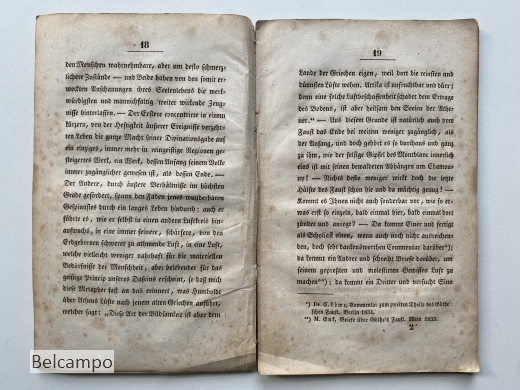 18
den Menschen wahrnehmbare, aber um desto schmerz-
lichere Zustände — und Beide haben von den somit er-
weckten Anschauungen ihres Seelenlebens die merk-
würdigsten und mannichfaltig weiter wirkende Zeug-
nisse hinterlassen. — Der Erstere concentrirte in einem
kürzern, von der Heftigkeit äußerer Ereignisse verzehr-
ten Leben die ganze Macht seiner Divinationsgabe auf
ein einziges, immer mehr in reingeistige Regionen ge-
steigertes Werk, ein Werk, dessen Anfang seinem Volke
immer zugänglicher gewesen ist, als dessen Ende. —
Der Andere, durch äußere Verhältnisse im höchsten
Grade gefördert, spann den Faden jenes wunderbaren
Gespinnstes durch ein langes Leben hindurch; auch er
führte es, wie er selbst in einen andern Luftkreis hin-
aufwuchs, in eine immer feinere, schärfere, von den
Erdgebornen schwerer zu athmende Luft, in eine Luft,
welche vielleicht weniger nahrhaft für die materiellen
Bedürfnisse der Menschheit, aber belebender für das
geistige Princip unseres Daseins erscheint, so daß mich
diese Metapher fast an das erinnert, was Humboldt
über Athens Lüfte nach jenen alten Griechen anführt,
welcher sagt: „Diese Art der Bildsamkeit ist aber dem
19
Lande der Griechen eigen, weil dort die reinsten und
dünnsten Lüfte wehen. Attika ist unfruchtbar und dürr;
denn eine solche Luftbeschaffenheit schadet dem Ertrage
des Bodens, ist aber heilsam den Seelen der Athe-
ner.“ — Aus diesem Grunde ist natürlich auch vom
Faust das Ende bei weitem weniger zugänglich, als
der Anfang, und doch gehört es so durchaus und ganz
zu ihm, wie der eisige Gipfel des Montblanc innerlich
eins ist mit seinen bewaldeten Abhängen um Chamou-
ny! — Nichts desto weniger wirkt doch die letzte
Hälfte des Faust schon hie und da mächtig genug! —
Kommt es Ihnen nicht auch sonderbar vor, wie so et-
was erst so einzeln, bald einmal hier, bald einmal dort
zündet und anregt? — Da kommt Einer und fertigt
als Scholiast einen, wenn auch noch nicht ausreichen-
den, doch sehr dankenswerthen Commentar darüber*);
da kommt ein Andrer und schreibt Briefe darüber, um
seinem gepreßten und molestirten Gewissen Luft zu
machen**); da kommt ein Dritter und versucht Sinn
*) Dr. C. Löwe, Commentar zum zweiten Theile des Göthe-
schen Faust. Berlin 1834.
**) M. Enk, Briefe über Göthe's Faust. Wien 1833.
2*
Belcampo